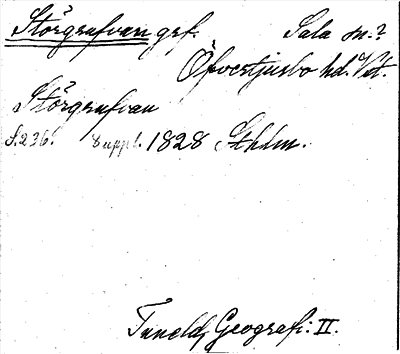 Störgrufvan grf. Sala sn.?
Öfvertjusbo hd. Vstm.
Störgrufvan
S. 236. 8 uppl. 1828 Sthlm.
Tuneld, Geografi: II.